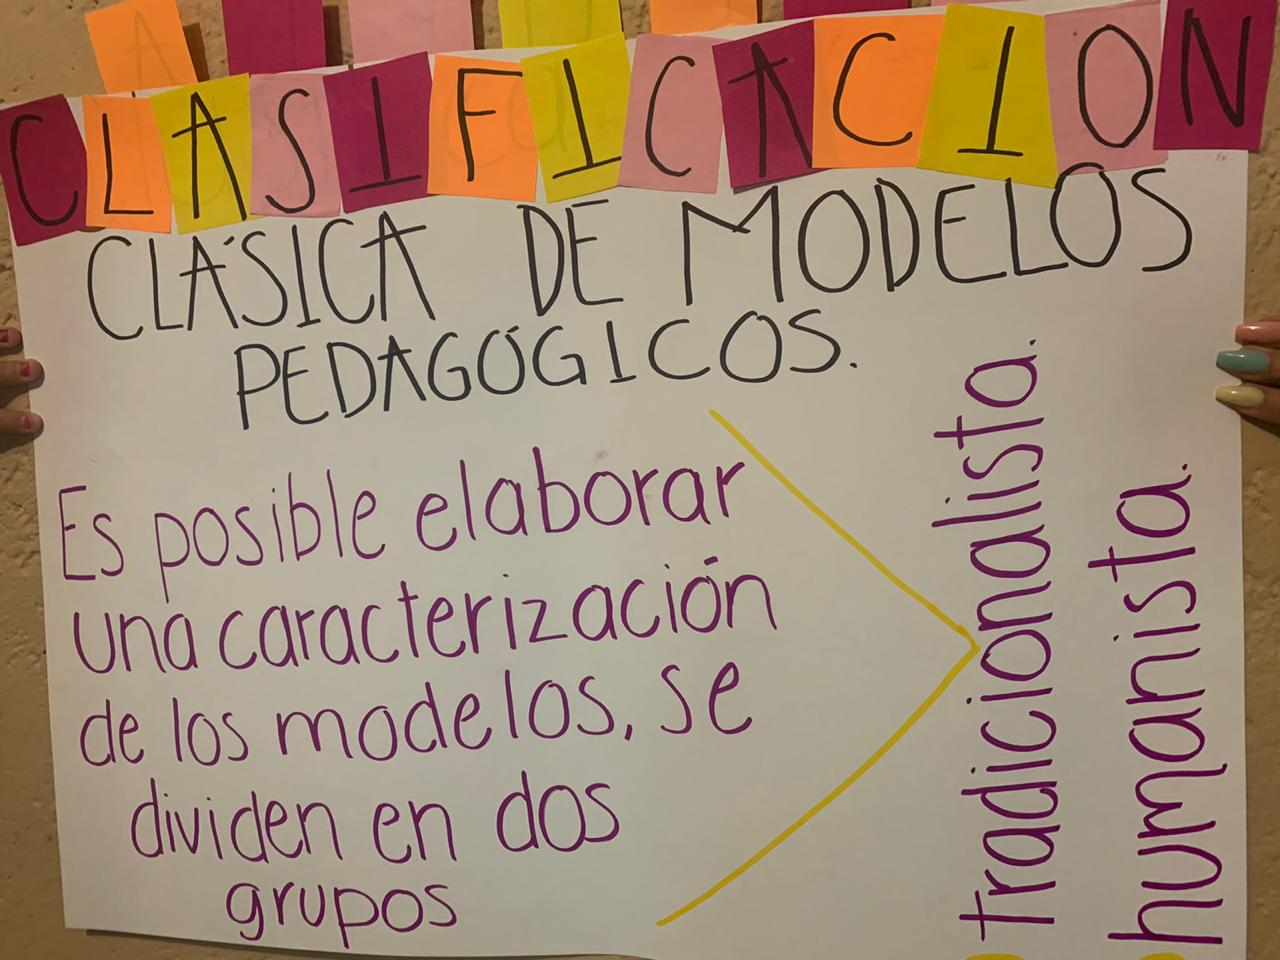 CLASIFICACION
CLÁSICA DE MODELOS
PEDAGÓGICOS.
Es posible elaborar
una caracterización
de los modelos, se
dividen en dos
grupos
tradicionalista.
humanista.